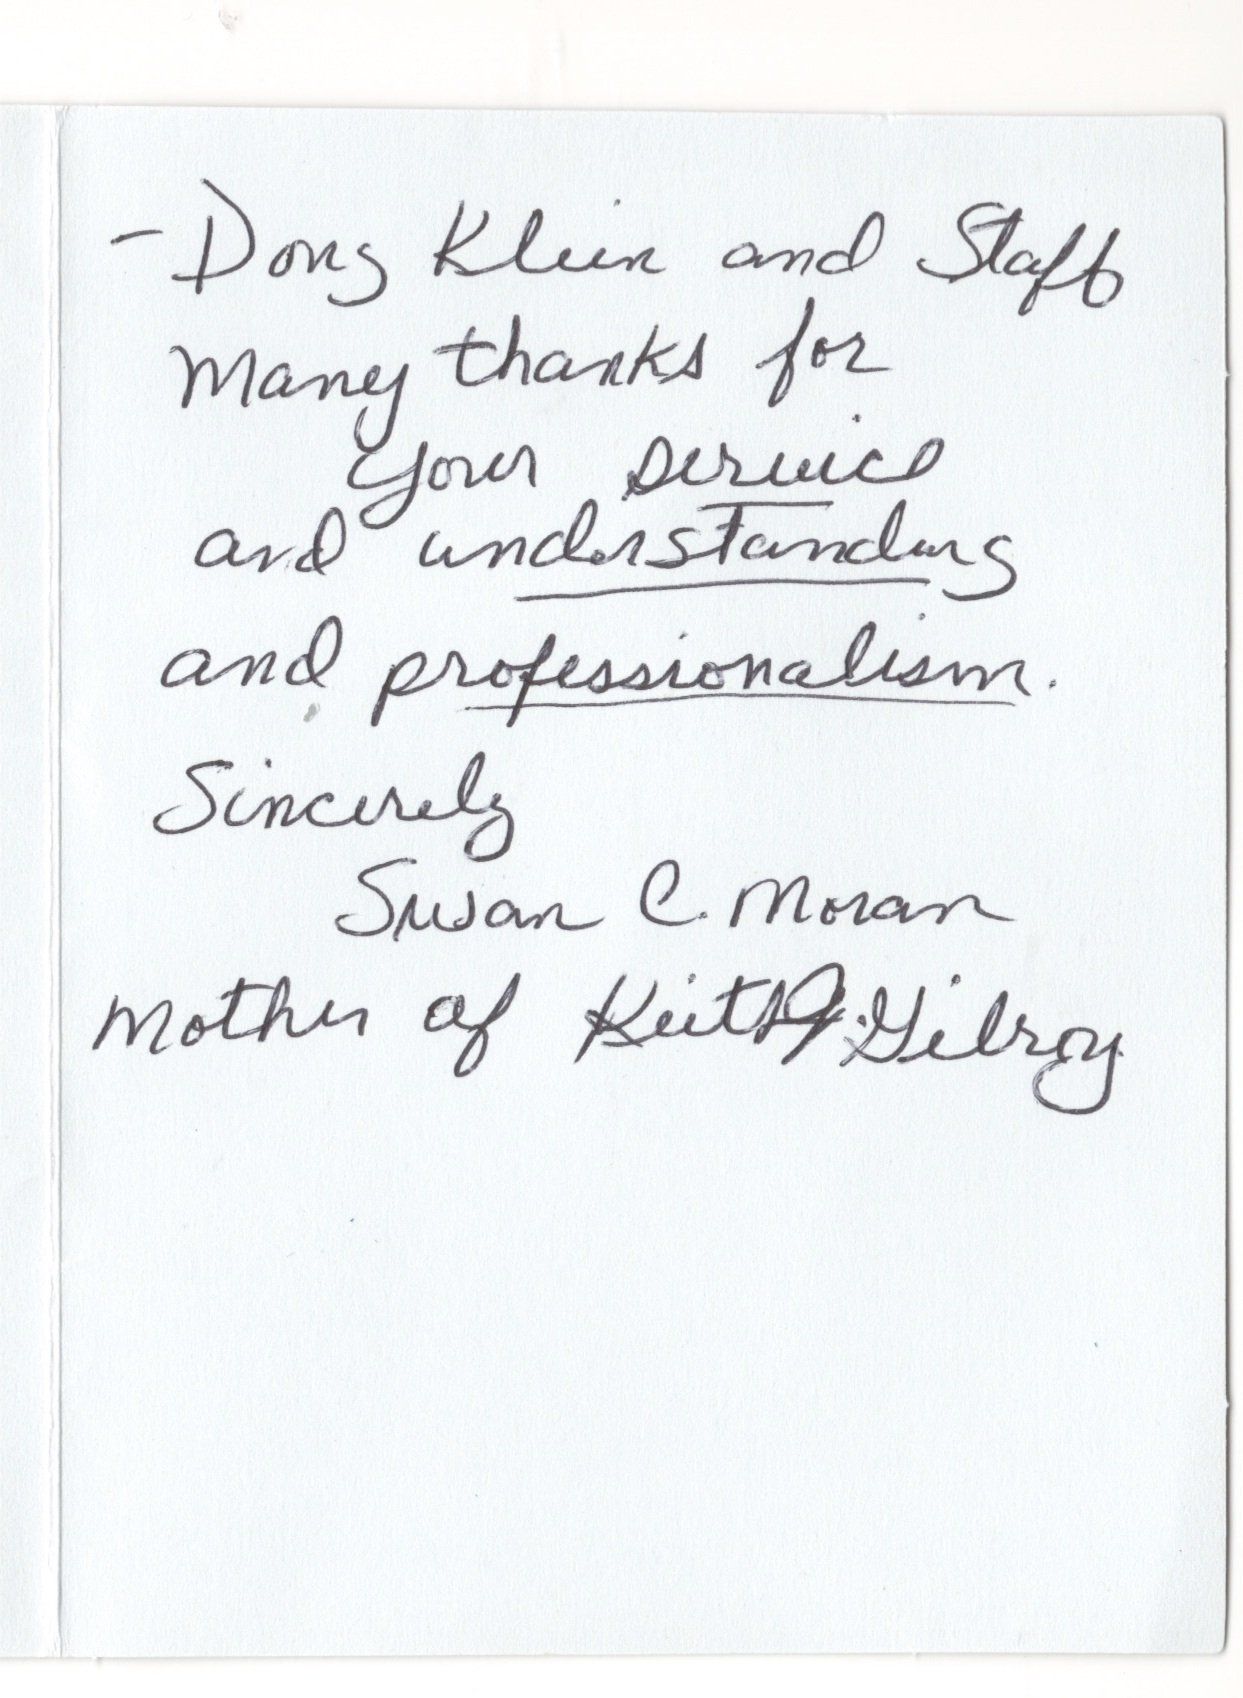 - Doug Klein and Staff
Many thanks for
your service
and understanding
and professionalism.
Sincerely
Susan C. Moran
Mother of Keith J. Gilroy